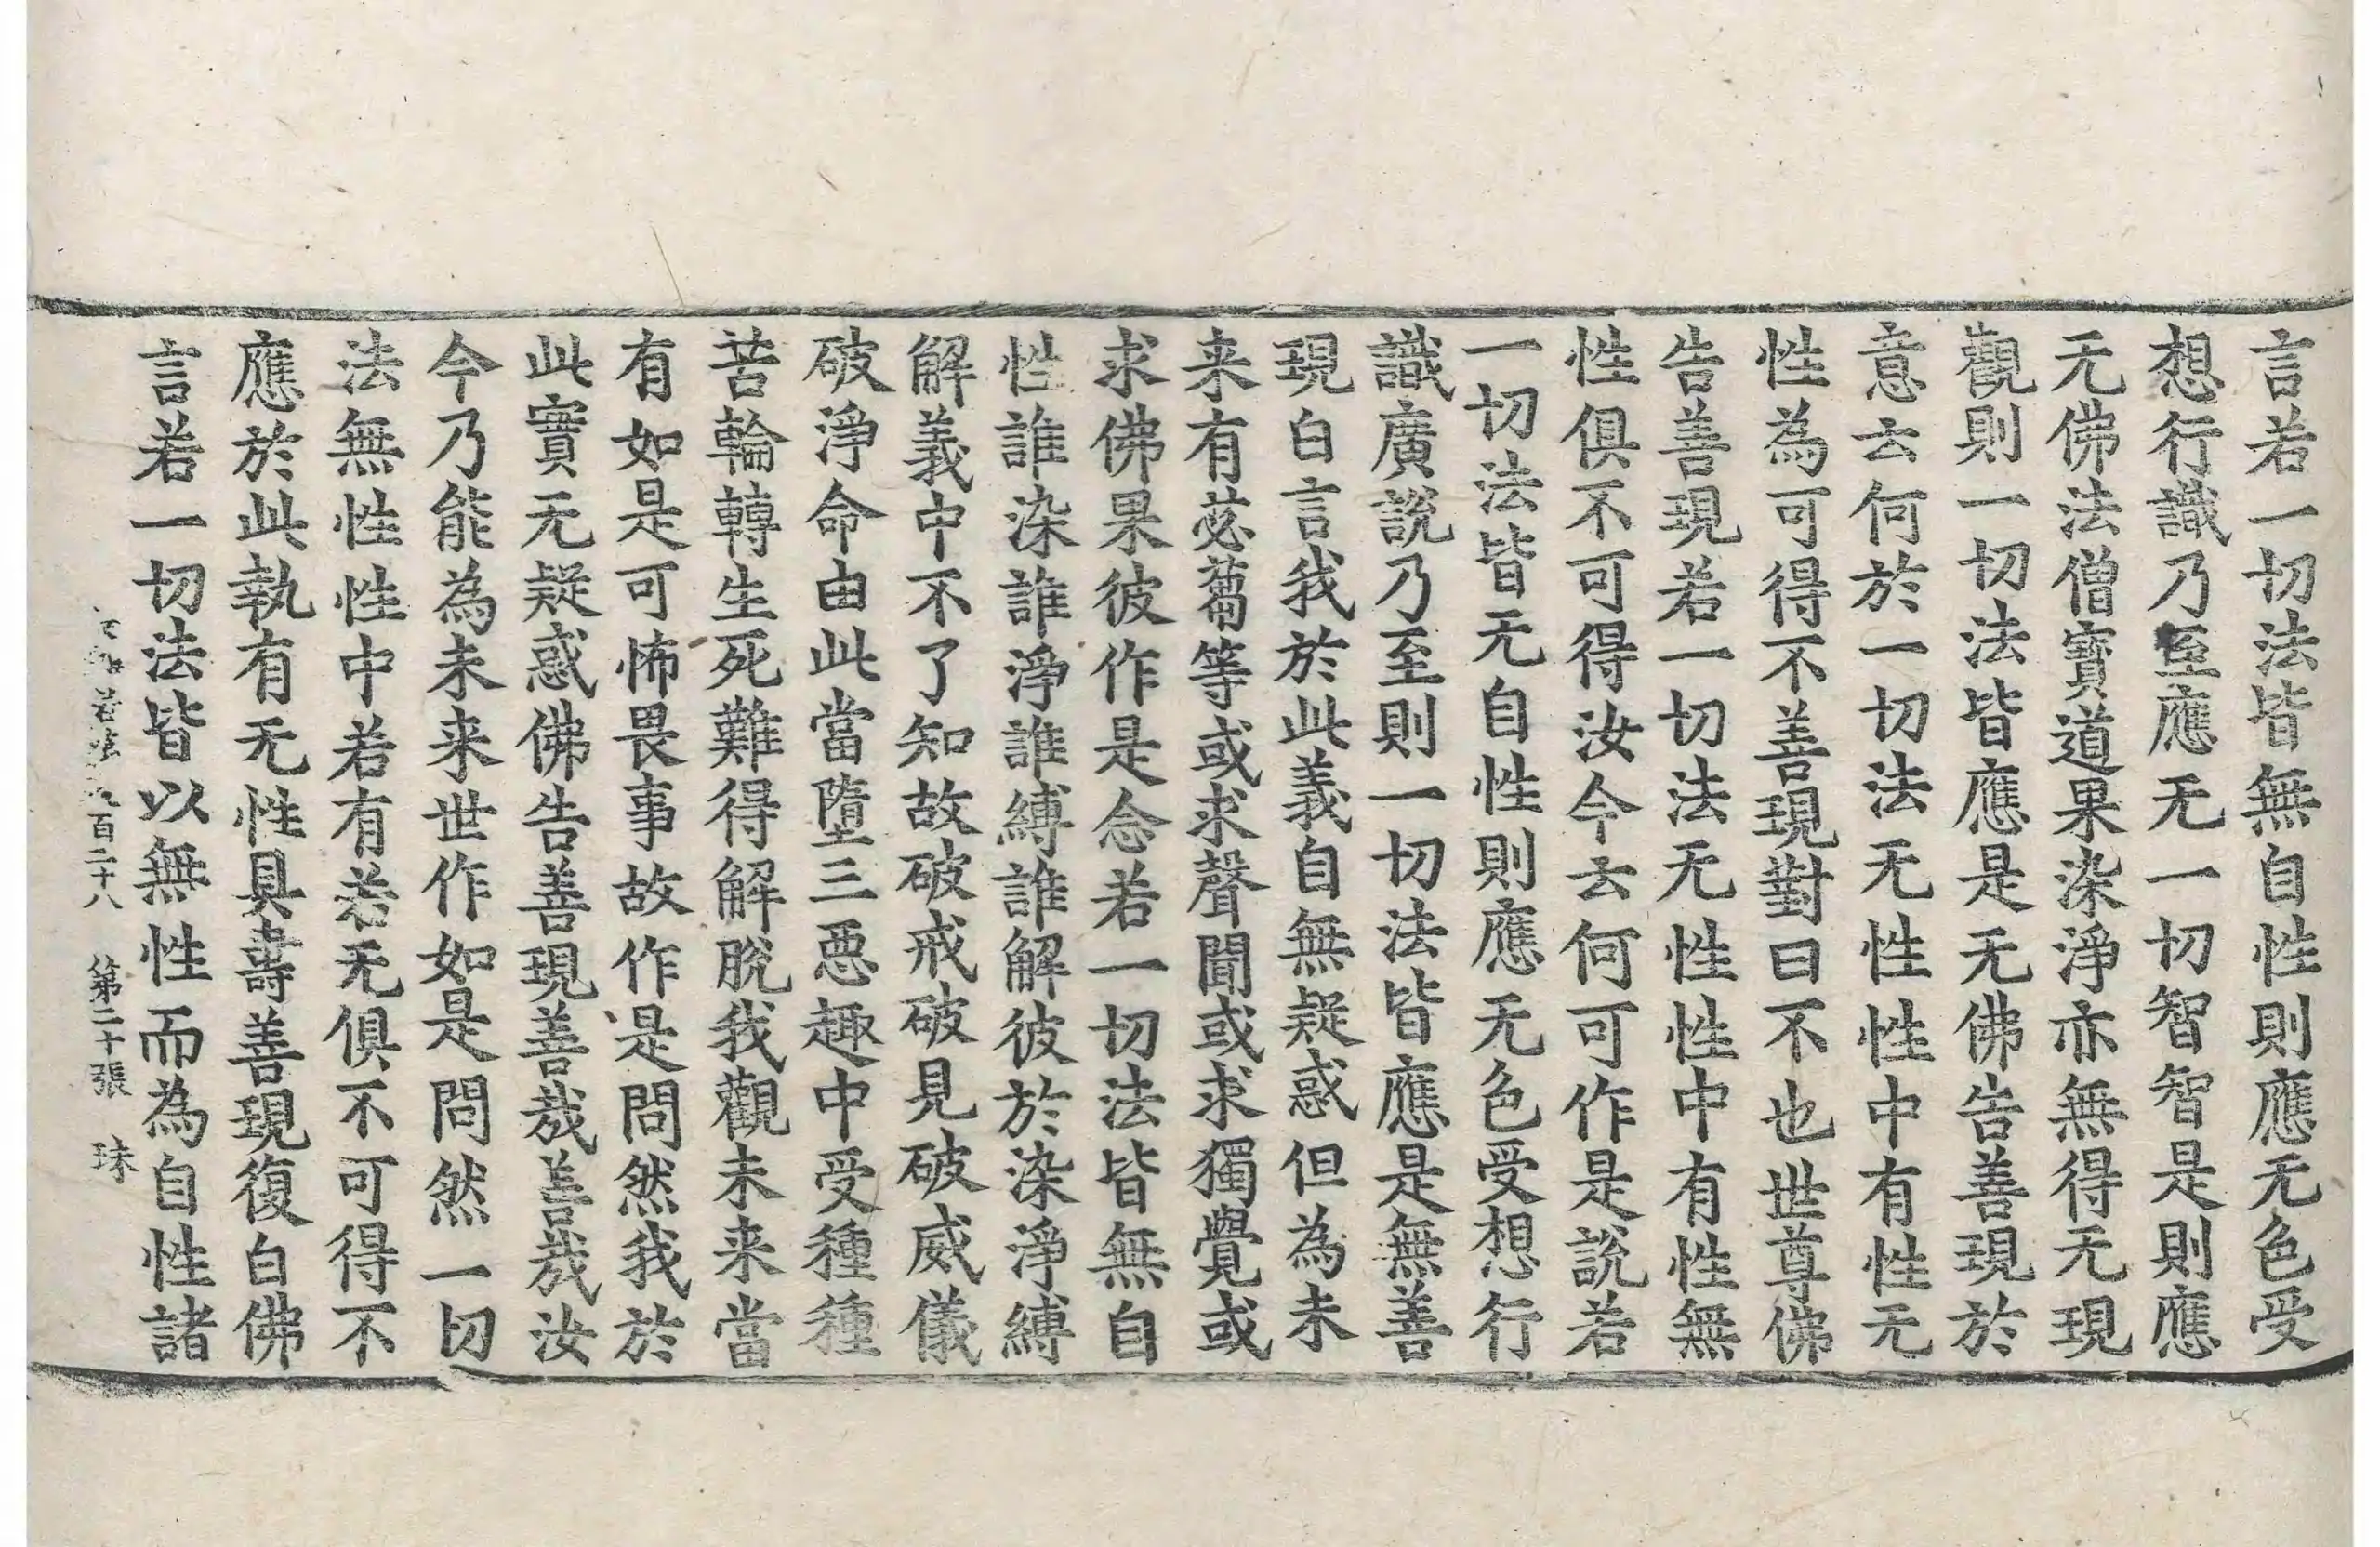 言若一切法皆無自性則應无色受
想行識乃至應无一切智智是則應
无佛法僧寶道果染淨亦無得无現
觀則一切法皆應是无佛告善現於
意云何於一切法无性性中有性无
性為可得不善現對曰不也世尊佛
告善現若一切法无性性中有性無
性俱不可得汝今云何可作是說若
一切法皆无自性則應无色受想行
識廣說乃至則一切法皆應是無善
現白言我於此義自無疑惑但為未
来有苾蒭等或求聲聞或求獨覺或
求佛果彼作是念若一切法皆無自
性誰染誰淨誰縛誰解彼於染淨縛
解義中不了知故破戒破見破威儀
破淨命由此當墮三惡趣中受種種
苦輪轉生死難得解脫我觀未来當
有如是可怖畏事故作是問然我於
此實无疑惑佛告善現善哉善哉汝
今乃能為未来世作如是問然一切
法無性性中若有若无俱不可得不
應於此執有无性具壽善現復白佛
言若一切法皆以無性而為自性諸
若 百二十八 第二十張 珠